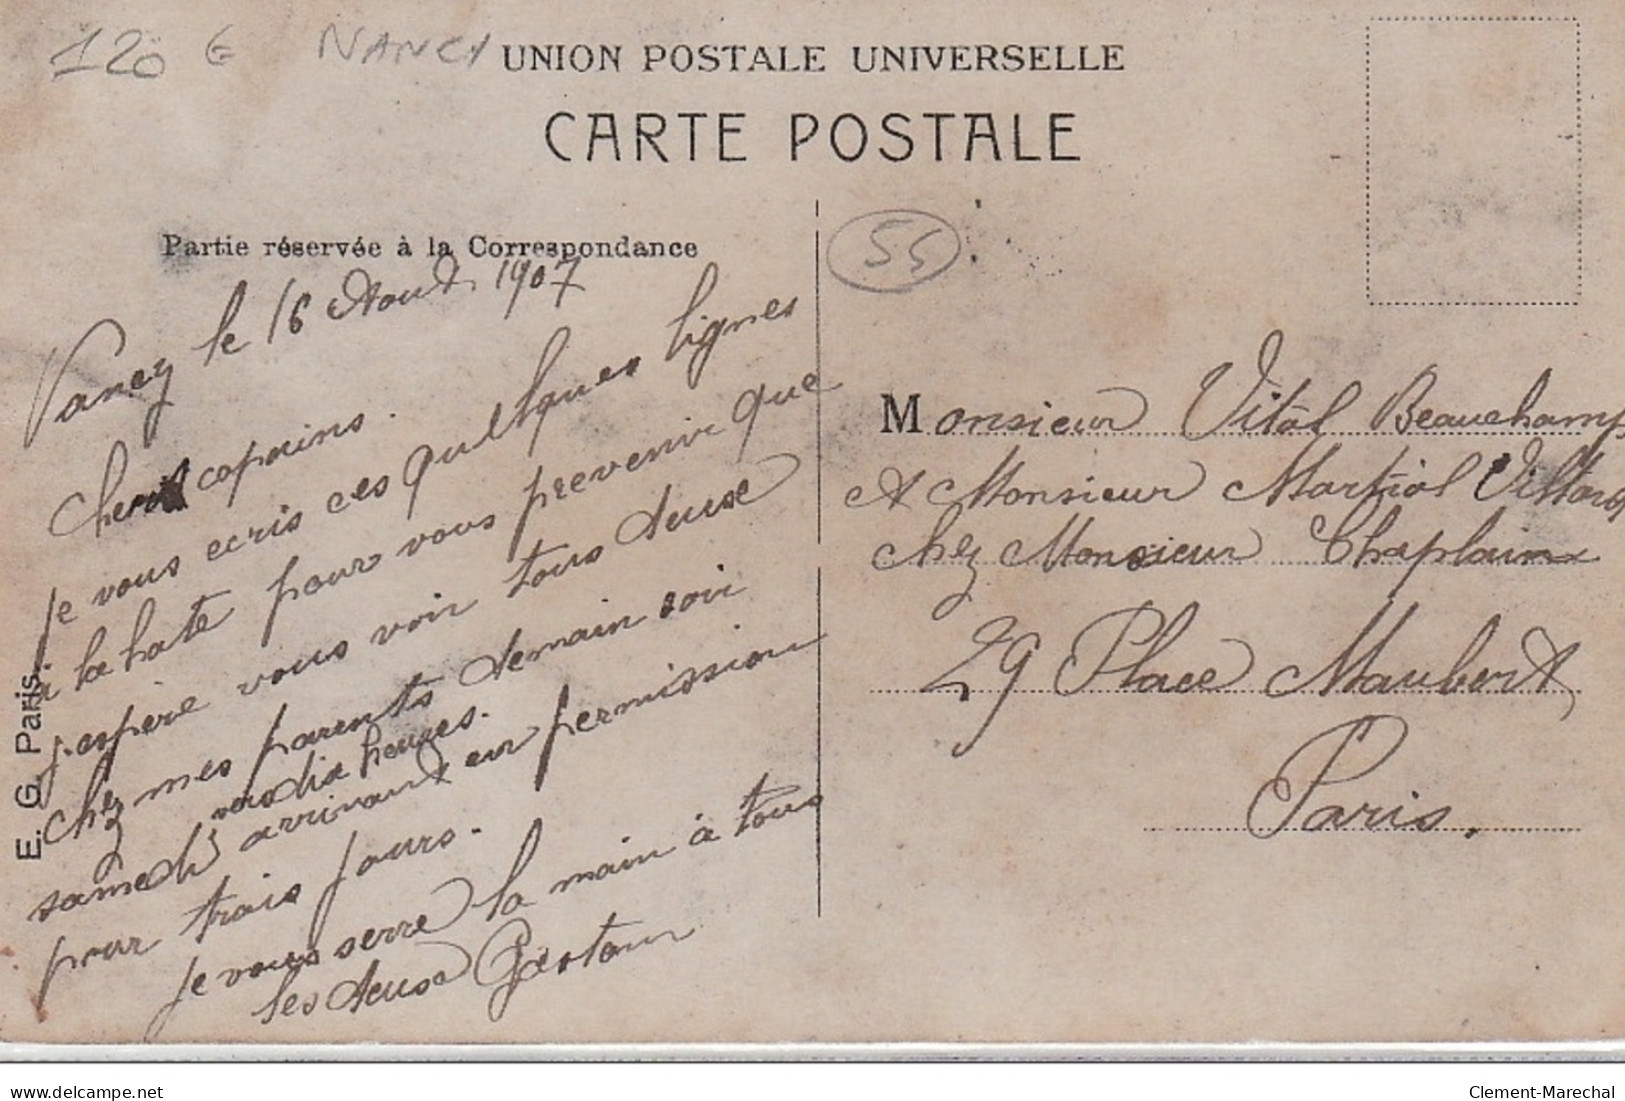 120 € NANCY
UNION POSTALE UNIVERSELLE
CARTE POSTALE
Partie réservée à la Correspondance
55
Nancy le 16 Aout 1907
Chers copains.
je vous ecris ces quelques lignes
à la hate pour vous prevenir que
j'espère vous voir tous deuse
chez mes parents demain soir
samedi vers dix heures.
arrivant en permission
pour trois jours.
je vous serre la main à tous
les deuse Gaston
E. G. Paris
Monsieur Vital Beauchamp
et Monsieur Martial
chez Monsieur Chaplain
29 Place Maubert
Paris.
delcampe.net
Clement-Marechal